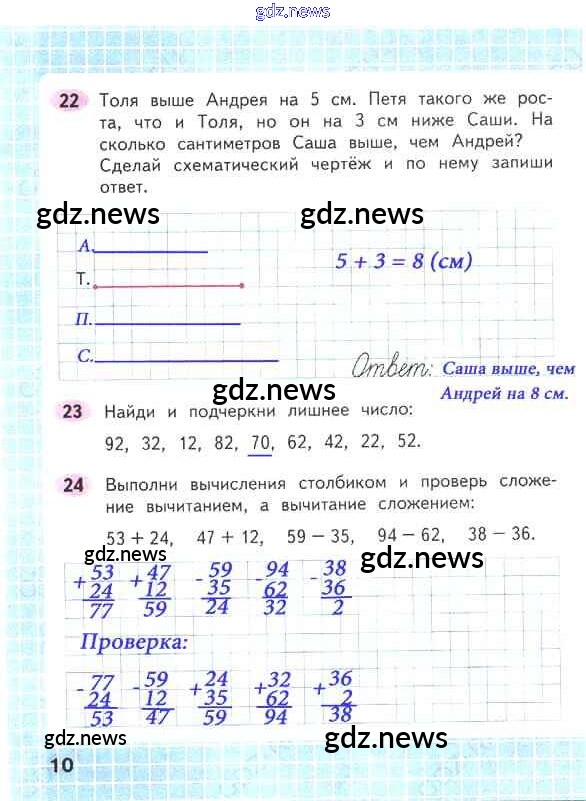 gdz.news
22 Толя выше Андрея на 5 см. Петя такого же рос-
та, что и Толя, но он на 3 см ниже Саши. На
сколько сантиметров Саша выше, чем Андрей?
Сделай схематический чертёж и по нему запиши
ответ.
gdz.news gdz.news
А.
5 + 3 = 8 (см)
Т.
П.
С.
Ответ: Саша выше, чем
Андрей на 8 см.
gdz.news
23 Найди и подчеркни лишнее число:
92, 32, 12, 82, 70, 62, 42, 22, 52.
24 Выполни вычисления столбиком и проверь сложе-
ние вычитанием, а вычитание сложением:
53 + 24, 47 + 12, 59 − 35, 94 − 62, 38 − 36.
gdz.news gdz.news
+ 53 + 47 - 59 - 94 - 38
24 12 35 62 36
77 59 24 32 2
Проверка:
- 77 - 59 + 24 + 32 + 36
24 12 35 62 2
53 47 59 94 38
gdz.news gdz.news
10